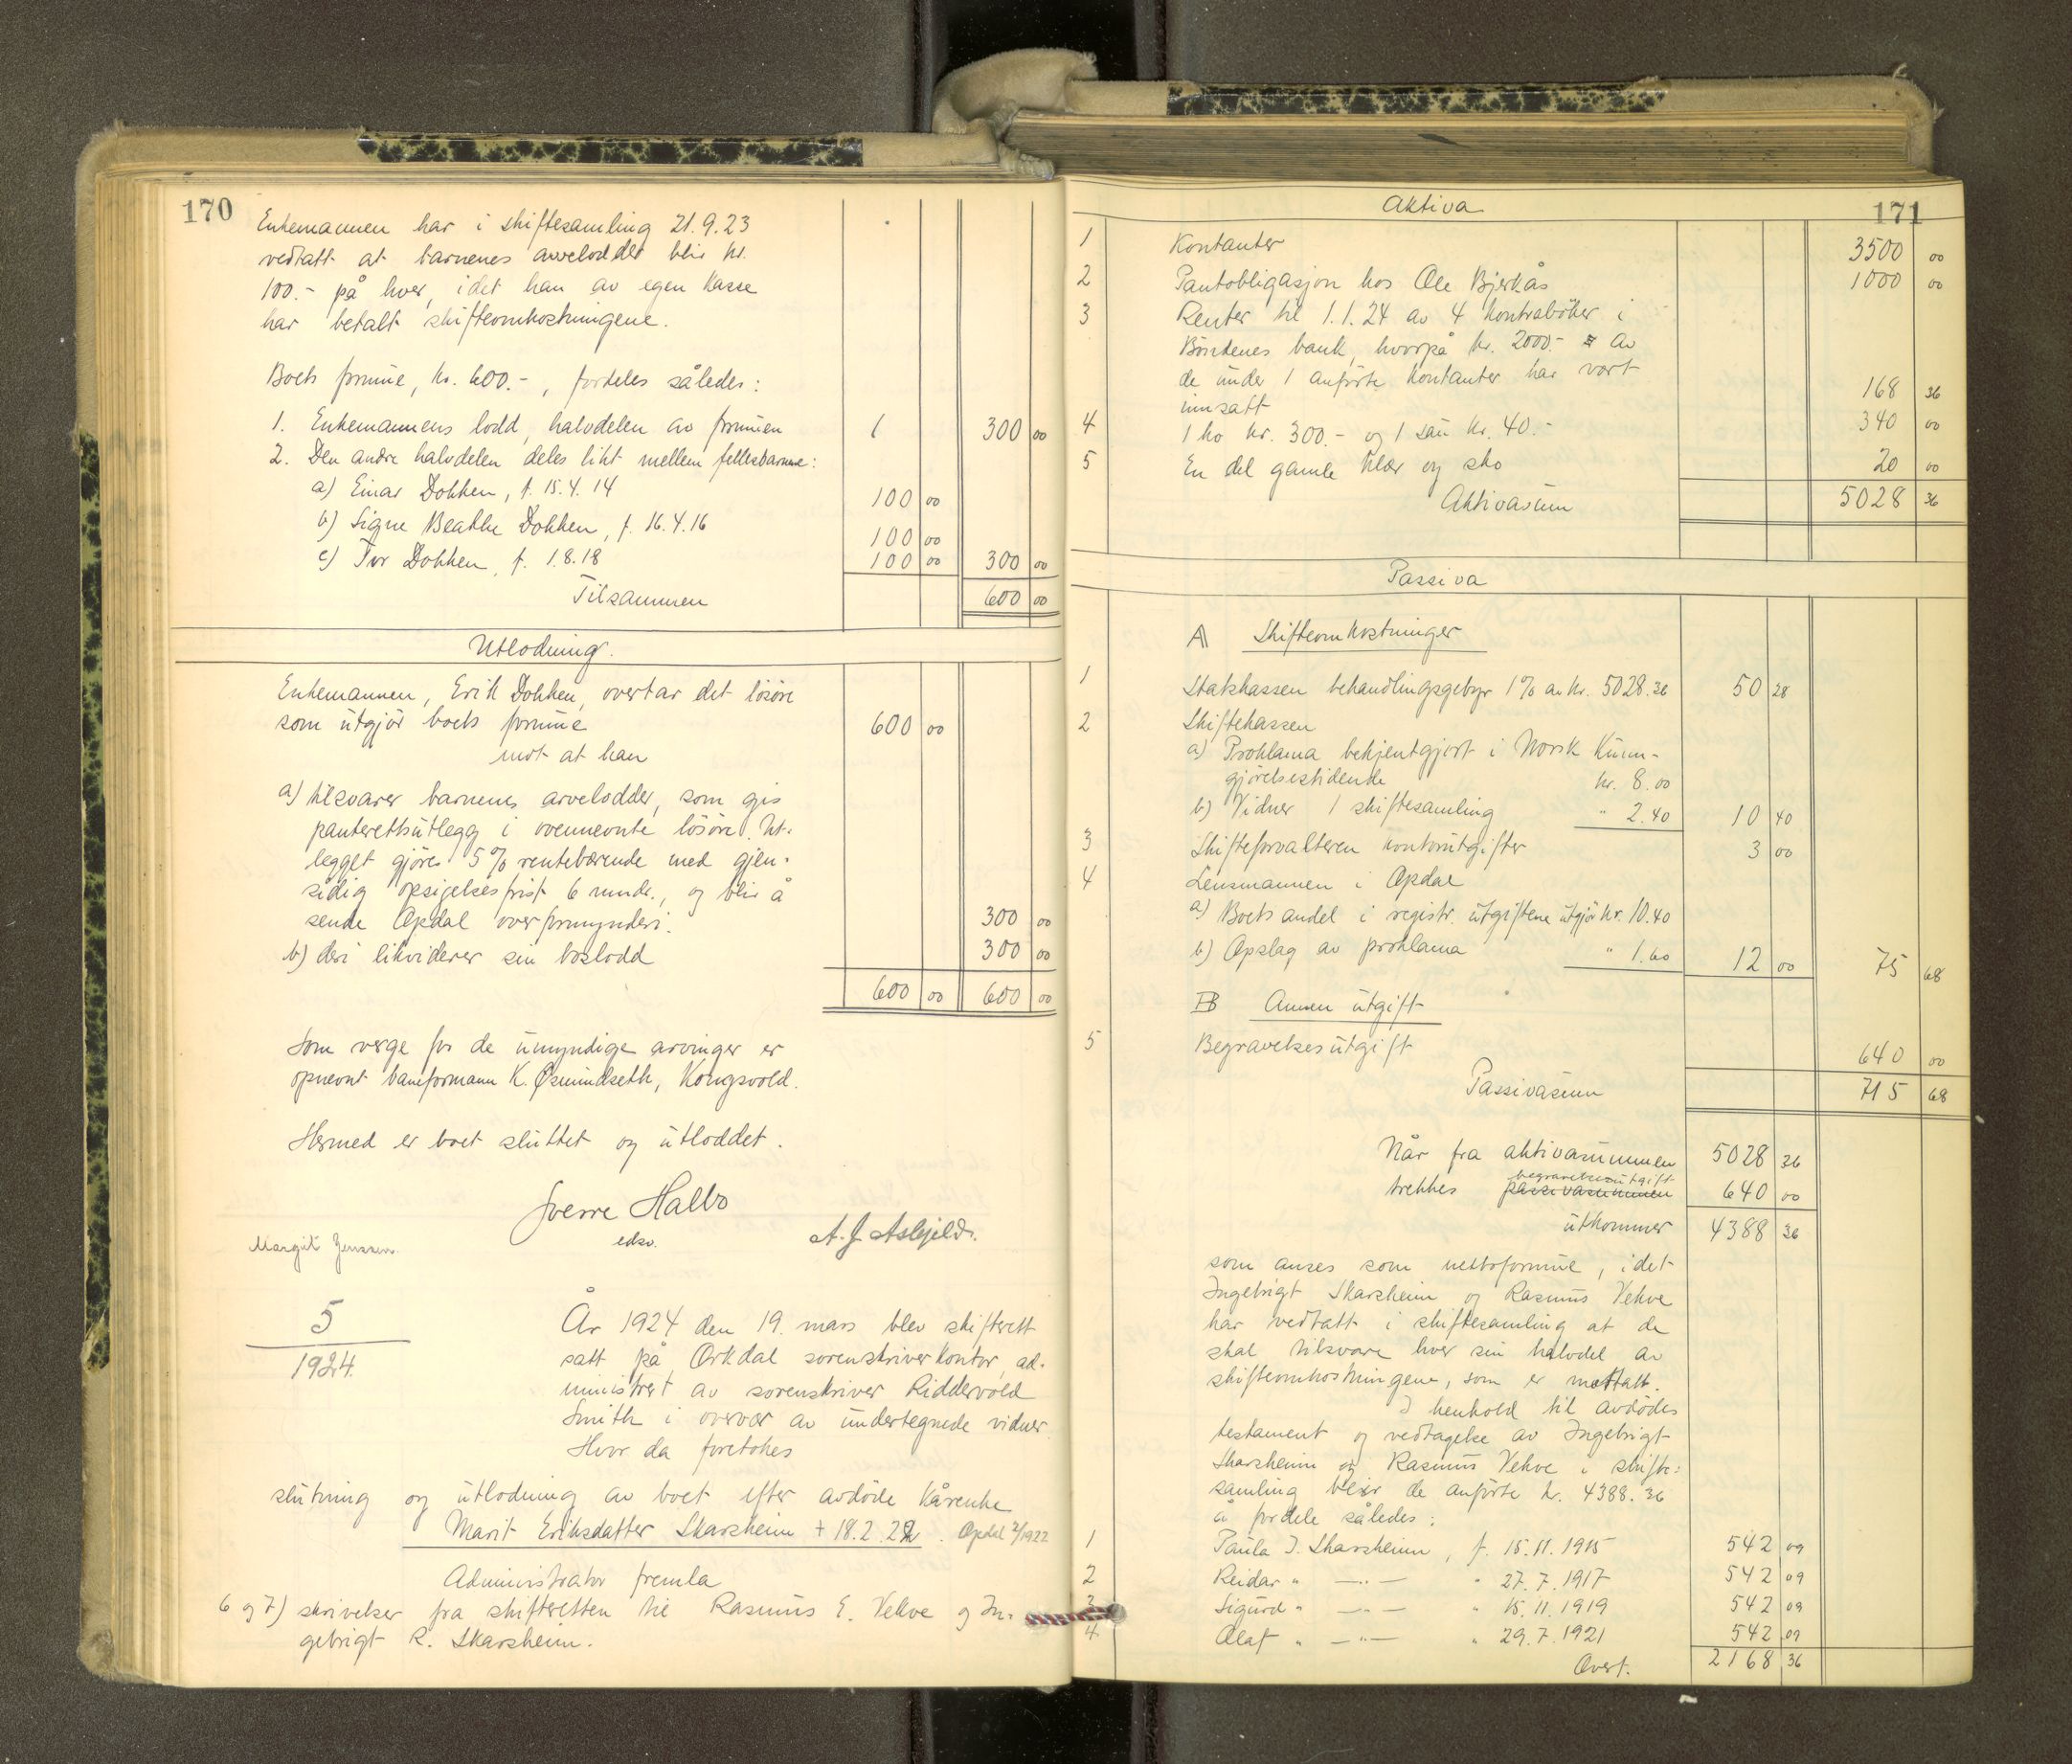 170
Enkemannen har i skiftesamling 21.9.23
vedtatt at barnenes arvelodder blir kr.
100.- på hver, idet han av egen kasse
har betalt skifteomkostningene.
Boets formue, kr. 600.-, fordeles således:
1. Enkemannens lodd, halvdelen av formuen 300 00
2. Den andre halvdelen deles likt mellem fellesbarnene:
a) Einar Dokken, f. 15.4.14 100 00
b) Signe Beathe Dokken, f. 16.4.16 100 00
c) Tor Dokken, f. 1.8.18 100 00 300 00
Tilsammen 600 00
Utlodning.
Enkemannen, Erik Dokken, overtar det lösöre
som utgjör boets formue 600 00
mot at han
a) tilsvarer barnenes arvelodder, som gis
panterettsutlegg i ovennevnte lösöre. Ut-
legget gjöres 5% rentebærende med gjen-
sidig opsigelsesfrist 6 mndr., og blir å
sende Opdal overformynderi. 300 00
b) deri likviderer sin boslodd 300 00
600 00 600 00
Som verge for de umyndige arvinger er
opnevnt baneformann K. Osmundseth, Kongsvold.
Hermed er boet sluttet og utloddet.
Sverre Halbo
edsv.
A. J. Asbjeld.
Margit Jenssen
5
1924.
År 1924 den 19. mars blev skifterett
satt på Orkdal sorenskriverkontor, ad-
ministrert av sorenskriver Riddervold
Smith i overvær av undertegnede vidner.
Hvor da foretokes
slutning og utlodning av boet efter avdöde kårenke
Marit Eriksdatter Skarsheim + 18.2.22. Opdal 2/1922
Administrator fremla
6 og 7) skrivelser fra skifteretten til Rasmus E. Vekve og In-
gebrigt R. Skarsheim.
171
Aktiva
1 Kontanter 3500 00
2 Pantobligasjon hos Ole Bjerkås 1000 00
3 Renter til 1.1.24 av 4 kontraböker i
Böndenes bank, hvorpå kr. 2000.- av
de under 1 anförte kontanter har vært
innsatt 168 36
4 1 ko kr. 300.- og 1 sau kr. 40.- 340 00
5 En del gamle klær og sko 20 00
Aktivasum 5028 36
Passiva
A Skifteomkostninger
1 Statskassen behandlingsgebyr 1% av kr. 5028.36 50 28
2 Skiftekassen
a) Proklama bekjentgjort i Norsk Kunn-
gjörelsestidende kr. 8.00
b) Vidner 1 skiftesamling " 2.40 10 40
3 Skifteforvalteren kontorutgifter 3 00
4 Lensmannen i Opdal
a) Boets andel i registr. utgiftene utgjör kr. 10.40
b) Opslag av proklama " 1.60 12 00 75 68
B Annen utgift
5 Begravelsesutgift 640 00
Passivasum 715 68
Når fra aktivasummen 5028 36
begravelsesutgift
trekkes passivasummen 640 00
utkommer 4388 36
som anses som nettoformue, idet
Ingebrigt Skarsheim og Rasmus Vekve
har vedtatt i skiftesamling at de
skal tilsvare hver sin halvdel av
skifteomkostningene, som er mottatt.
I henhold til avdödes
testament og vedtagelse av Ingebrigt
Skarsheim og Rasmus Vekve i skifte-
samling blir de anförte kr. 4388.36
å fordele således:
1 Paula I. Skarsheim, f. 15.11.1915 542 09
2 Reidar " —"— " 27.7.1917 542 09
3 Sigurd " —"— " 15.11.1919 542 09
4 Olaf " —"— " 29.7.1921 542 09
Overf. 2168 36